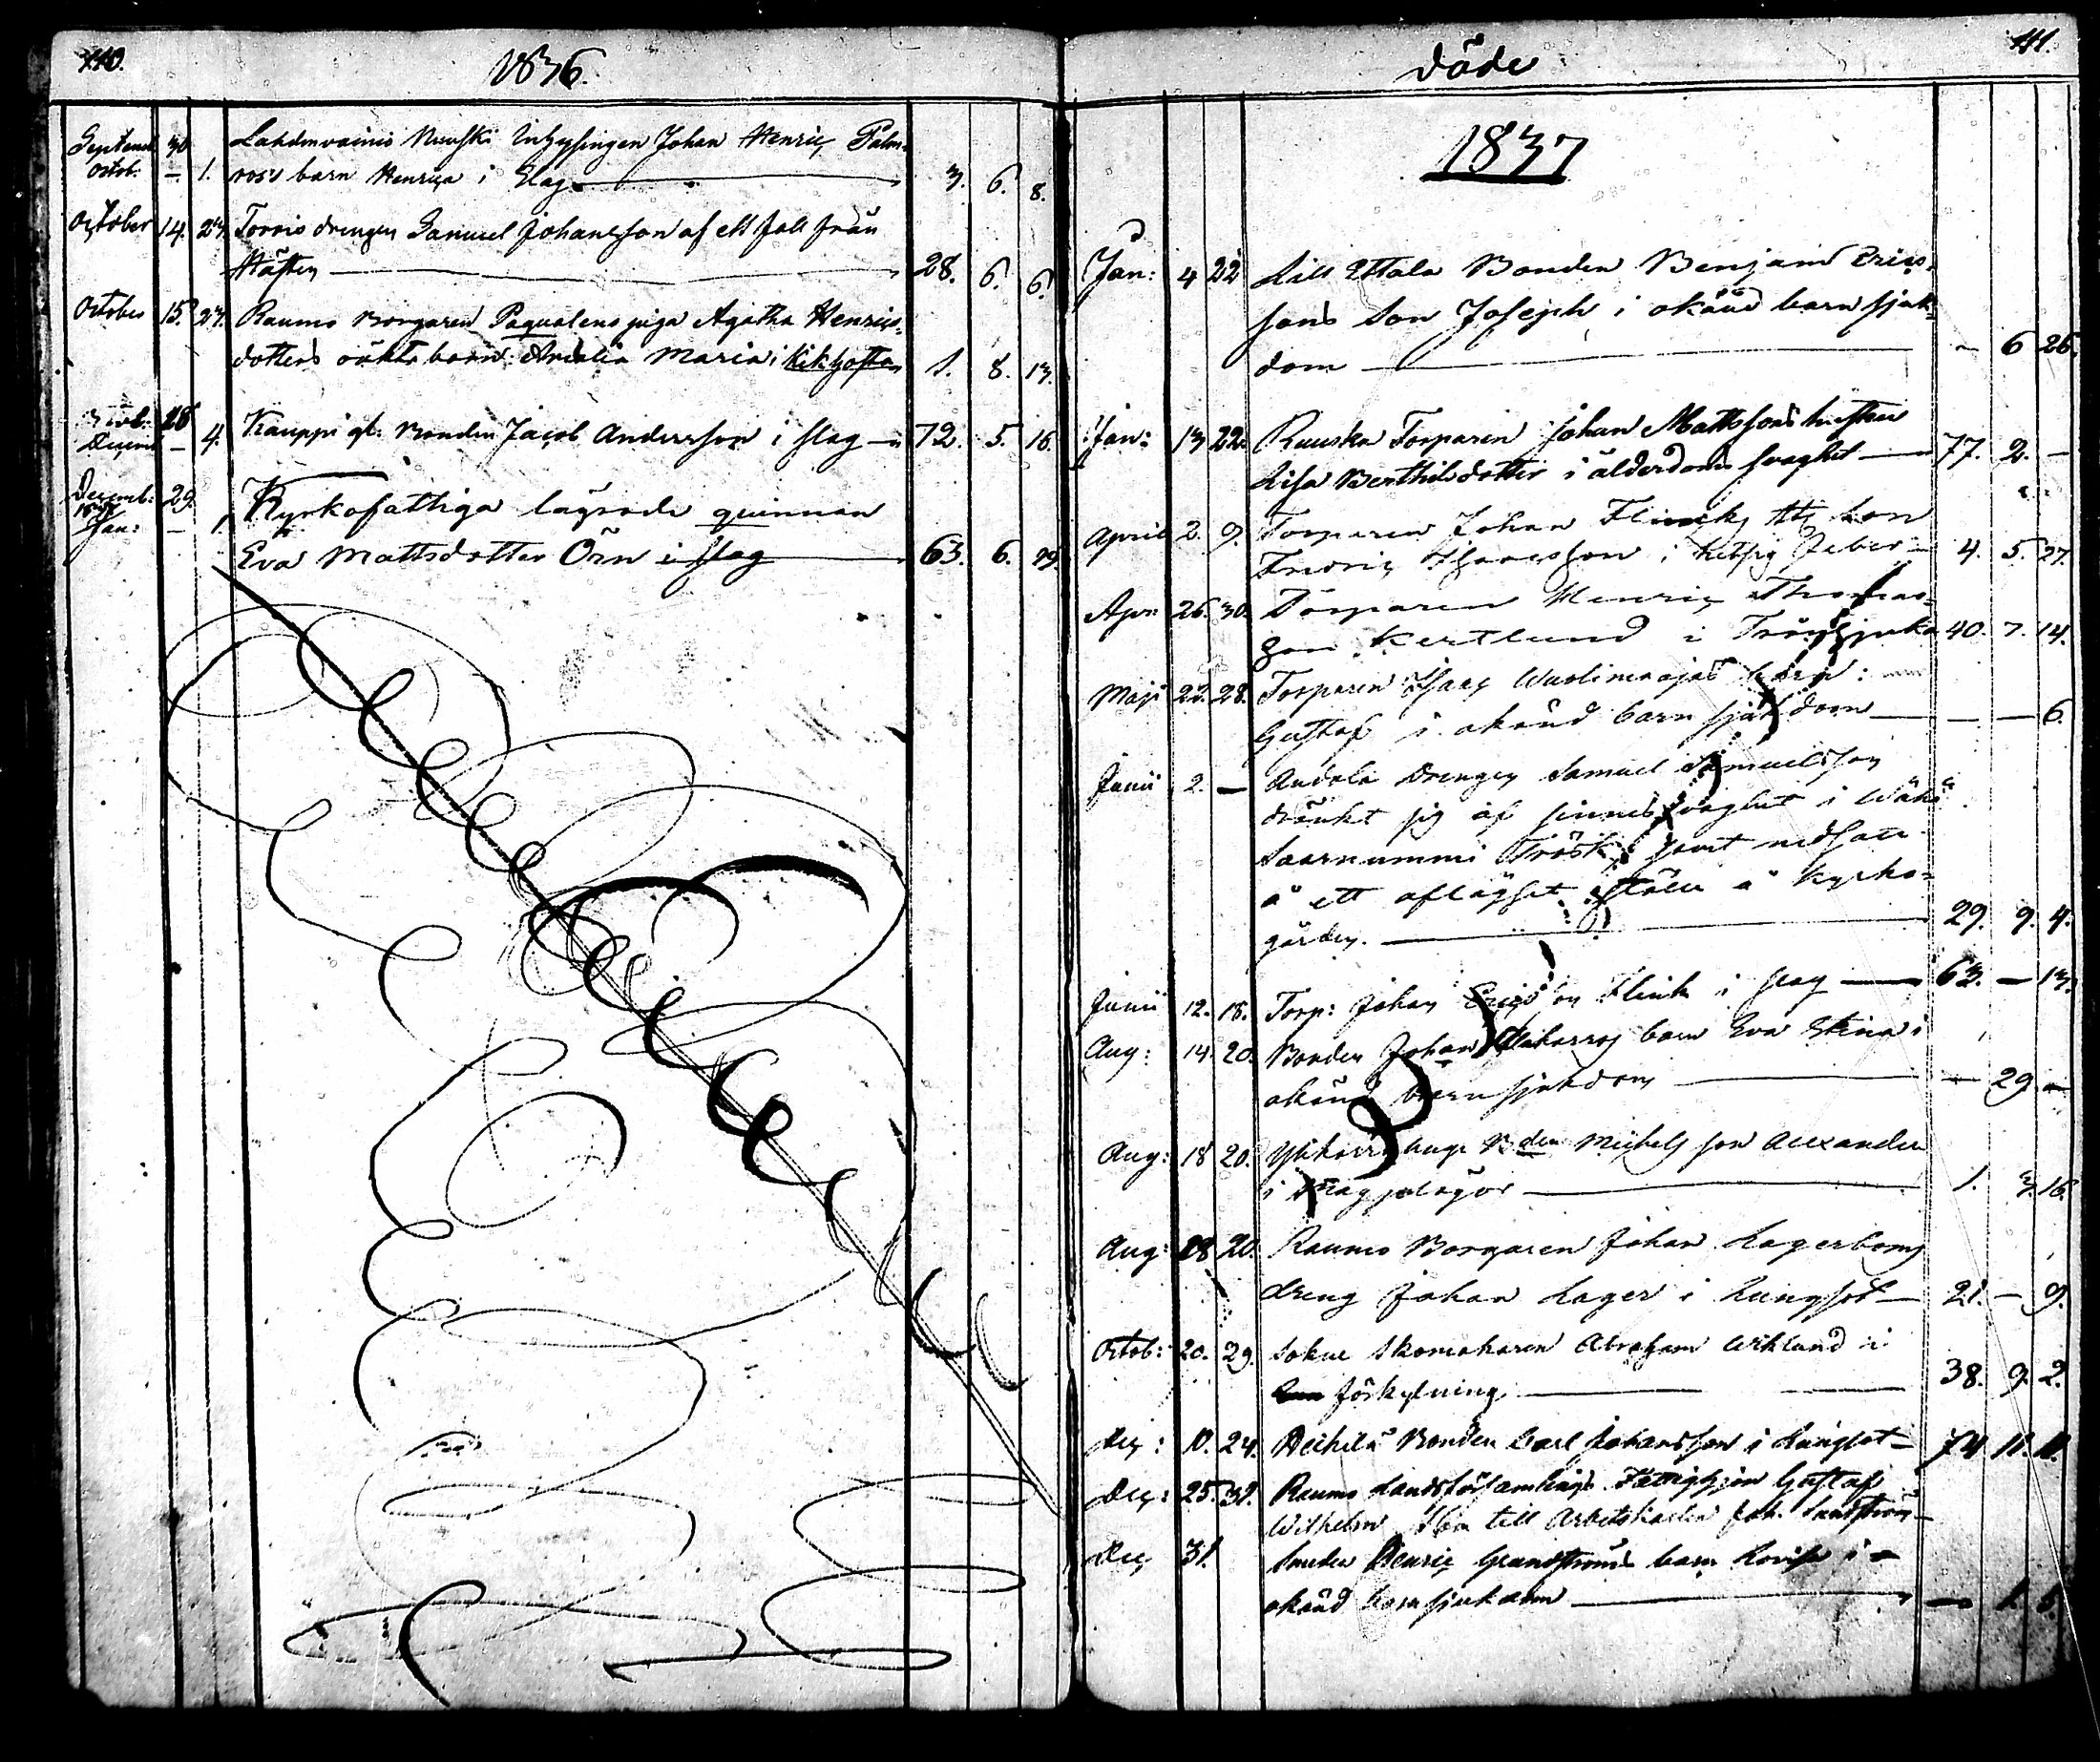 110.
1836.
Septemb. 30 Lahdenvainio Nuuski Inhysingen Johan Henric Palm-
Octob. — 1. ros's barn Henrica i Slag — 3. 6. 8.
October 14. 23. Torvio drengen Samuel Johansson af ett fall från
Hästen — 28. 6. 6.
October 15. 23. Raumo Borgaren Paqualens piga Agatha Henrics-
dotters oäkta barn Amalia Maria i Kikhosta 1. 8. 13.
28 Kauppi gl. Bonden Jacob Andersson i slag 72. 5. 16.
Decemb — 4.
Decemb: 29. Kyrkofattiga lägrade quinnan
Jan: — 1. Eva Mattsdotter Örn i slag 63. 6. 29.
111.
Döde
1837
Jan: 4 22 Lill Uttala Bonden Benjamin Erics-
sons Son Joseph i okänd barn sjuk-
dom — 6 26.
Jan: 13 22. Ruuska Torparen Johan Mattssons hustru
Lisa Berthilsdotter i ålderdoms svaghet — 77. 2. —
April 2. 9. Torparen Johan Flinck son
Fredric i hetsig feber 4. 5. 27.
Apr: 26. 30. Torparen Henric Thomas-
son Kertlund i Tröstsjuka 40. 7. 14.
Maji 22. 28. Torparen Isaac barn:
Gustaf i okänd barn sjukdom — — — 6.
Junii 2. — Andola Drengen Samuel Samuelsson
dränkt sig af sinnes svaghet i Wähä
Saarnummi Träsk, samt nedsatt
å ett aflägset ställe å Kyrko-
gården. — 29. 9. 4.
Junii 12. 18. Torp: Johan Ericsson Flink i slag — 63. — 13.
Aug: 14. 20. Bonden Johan barn Eva Stina i
okänd barnsjukdom — — 29. —
Aug: 18 20. Bden Michels son Alexander
i — 1. 3. 16.
Aug: 18 20. Raumo Borgaren Johan Lagerboms
dreng Johan Lager i Lungsot — 21. — 9.
Octob: 20. 29. Sokne Skomakaren Abraham Wiklund i
förkylning — 38. 9. 2.
Dec: 10. 24. Heikilä Bonden Carl Johansson i Lungsot — 74 11. 11.
Dec: 25. 31. Raumo Landsförsamlings Fattighjon Gustaf
Wilhelm son till Arbetskarlen Joh. Sandström
Dec 31. Smeden Henric Grandströms barn Lovisa i
okänd barnsjukdom —